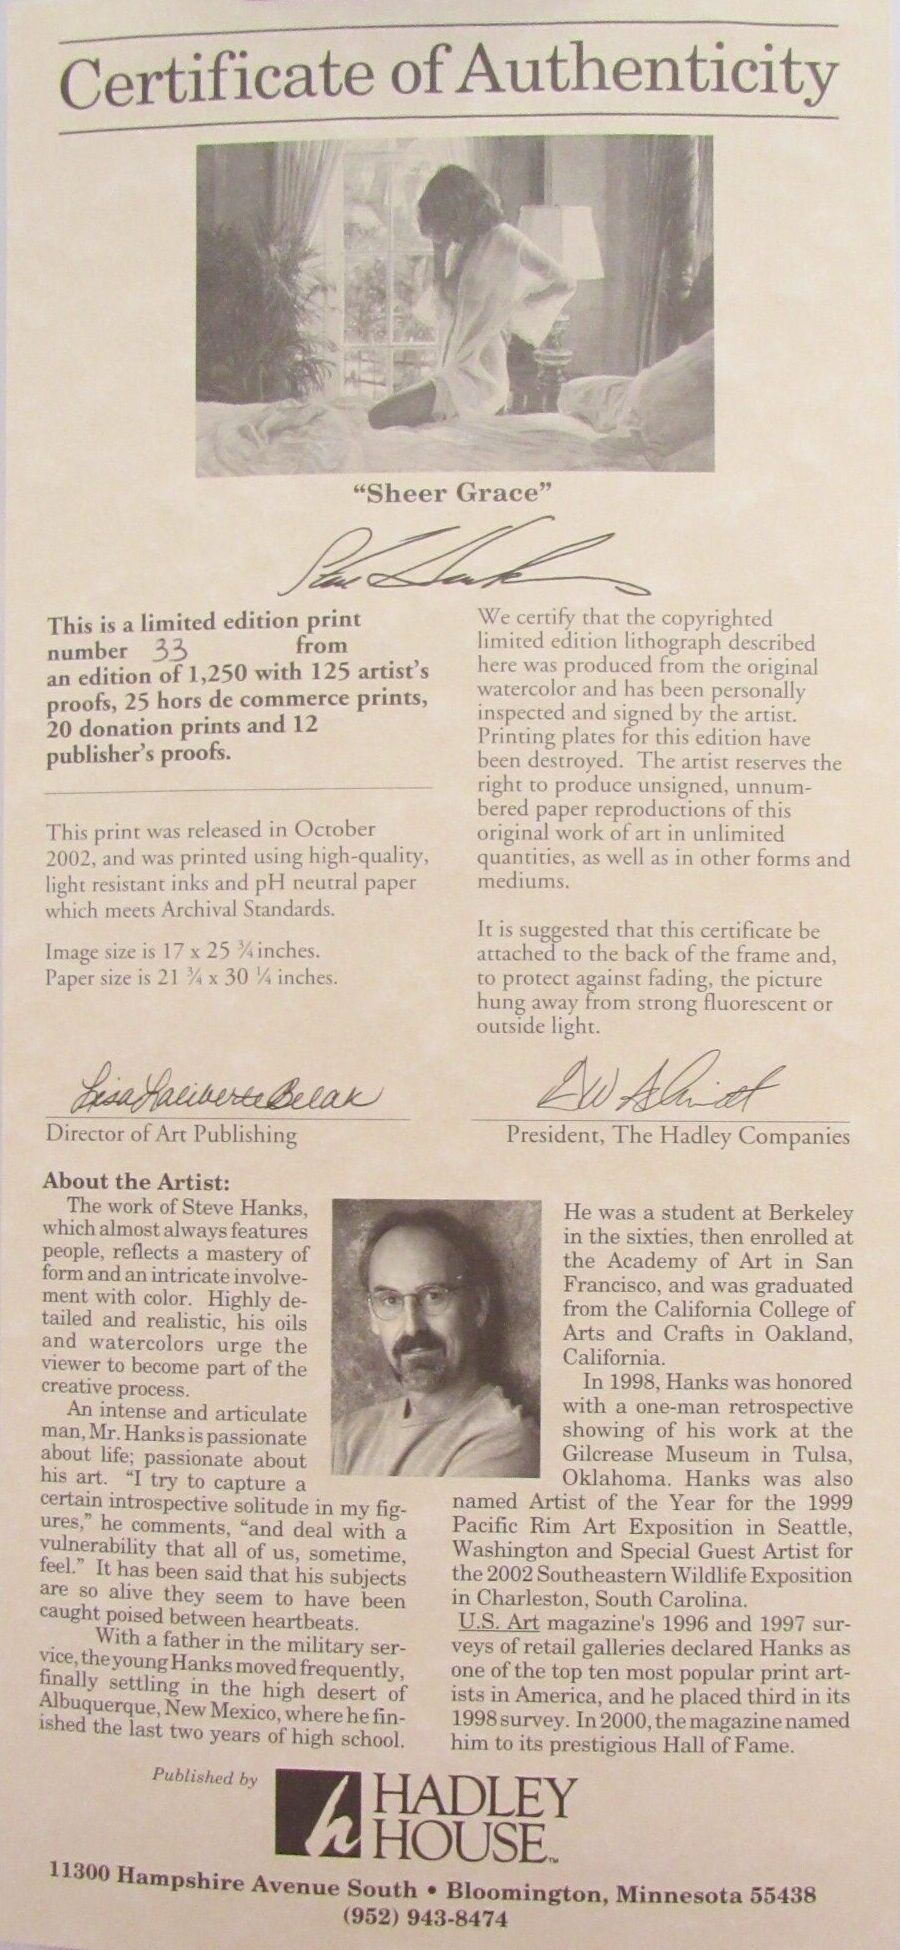 Certificate of Authenticity
“Sheer Grace”
Steve Hanks
This is a limited edition print
number 33 from
an edition of 1,250 with 125 artist's
proofs, 25 hors de commerce prints,
20 donation prints and 12
publisher's proofs.
This print was released in October
2002, and was printed using high-quality,
light resistant inks and pH neutral paper
which meets Archival Standards.
Image size is 17 x 25 ¾ inches.
Paper size is 21 ¾ x 30 ¼ inches.
We certify that the copyrighted
limited edition lithograph described
here was produced from the original
watercolor and has been personally
inspected and signed by the artist.
Printing plates for this edition have
been destroyed. The artist reserves the
right to produce unsigned, unnum-
bered paper reproductions of this
original work of art in unlimited
quantities, as well as in other forms and
mediums.
It is suggested that this certificate be
attached to the back of the frame and,
to protect against fading, the picture
hung away from strong fluorescent or
outside light.
Lisa Laliberte Belak
Director of Art Publishing
DW Schmidt
President, The Hadley Companies
About the Artist:
The work of Steve Hanks,
which almost always features
people, reflects a mastery of
form and an intricate involve-
ment with color. Highly de-
tailed and realistic, his oils
and watercolors urge the
viewer to become part of the
creative process.
An intense and articulate
man, Mr. Hanks is passionate
about life; passionate about
his art. “I try to capture a
certain introspective solitude in my fig-
ures,” he comments, “and deal with a
vulnerability that all of us, sometime,
feel.” It has been said that his subjects
are so alive they seem to have been
caught poised between heartbeats.
With a father in the military ser-
vice, the young Hanks moved frequently,
finally settling in the high desert of
Albuquerque, New Mexico, where he fin-
ished the last two years of high school.
He was a student at Berkeley
in the sixties, then enrolled at
the Academy of Art in San
Francisco, and was graduated
from the California College of
Arts and Crafts in Oakland,
California.
In 1998, Hanks was honored
with a one-man retrospective
showing of his work at the
Gilcrease Museum in Tulsa,
Oklahoma. Hanks was also
named Artist of the Year for the 1999
Pacific Rim Art Exposition in Seattle,
Washington and Special Guest Artist for
the 2002 Southeastern Wildlife Exposition
in Charleston, South Carolina.
U.S. Art magazine's 1996 and 1997 sur-
veys of retail galleries declared Hanks as
one of the top ten most popular print art-
ists in America, and he placed third in its
1998 survey. In 2000, the magazine named
him to its prestigious Hall of Fame.
Published by
h HADLEY
HOUSE™
11300 Hampshire Avenue South • Bloomington, Minnesota 55438
(952) 943-8474